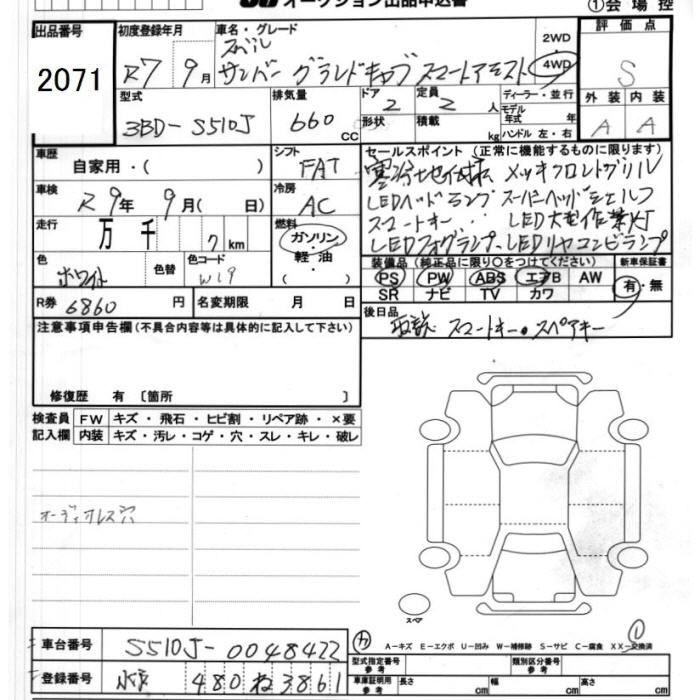 オークション出品申込書
①会場控
出品番号
2071
初度登録年月
R7 9月
車名・グレード
スバル
サンバー グランドキャブ スマートアシスト
2WD
4WD
評価点
S
型式
3BD-S510J
排気量
660 cc
ドア
2
定員
2人
形状
積載 kg
ディーラー・並行
モデル
年式 年
ハンドル 左・右
外装 内装
A A
車歴
自家用・( )
シフト
FAT
車検
R9年 9月( 日)
冷房
AC
走行
万 千 7km
燃料
ガソリン・
軽油・
( )
色
ホワイト
色替
色コード
W19
R券
6860円
名変期限 月 日
セールスポイント (正常に機能するものに限ります)
寒冷地仕様 メッキフロントグリル
LEDヘッドランプ スーパーヘッドシェルフ
スマートキー LED大型作業灯
LEDフォグランプ、LEDリヤコンビランプ
装備品(純正品に限り○をつけてください)
PS PW ABS エアB AW
SR ナビ TV カワ
新車保証書
有・無
後日品
取説 スマートキー・スペアキー
注意事項申告欄(不具合内容等は具体的に記入して下さい)
修復歴 有〔箇所 〕
検査員
記入欄
FW キズ・飛石・ヒビ割・リペア跡・×要
内装 キズ・汚レ・コゲ・穴・スレ・キレ・破レ
オーディオレス穴
スペア
A-キズ E-エクボ U-凹み W-補修跡 S-サビ C-腐食 XX-交換済
車台番号 S510J-0048422
登録番号 水戸 480 ね 3861
型式指定番号
参考
類別区分番号
参考
車庫証明用
参考
長さ cm
幅 cm
高さ cm